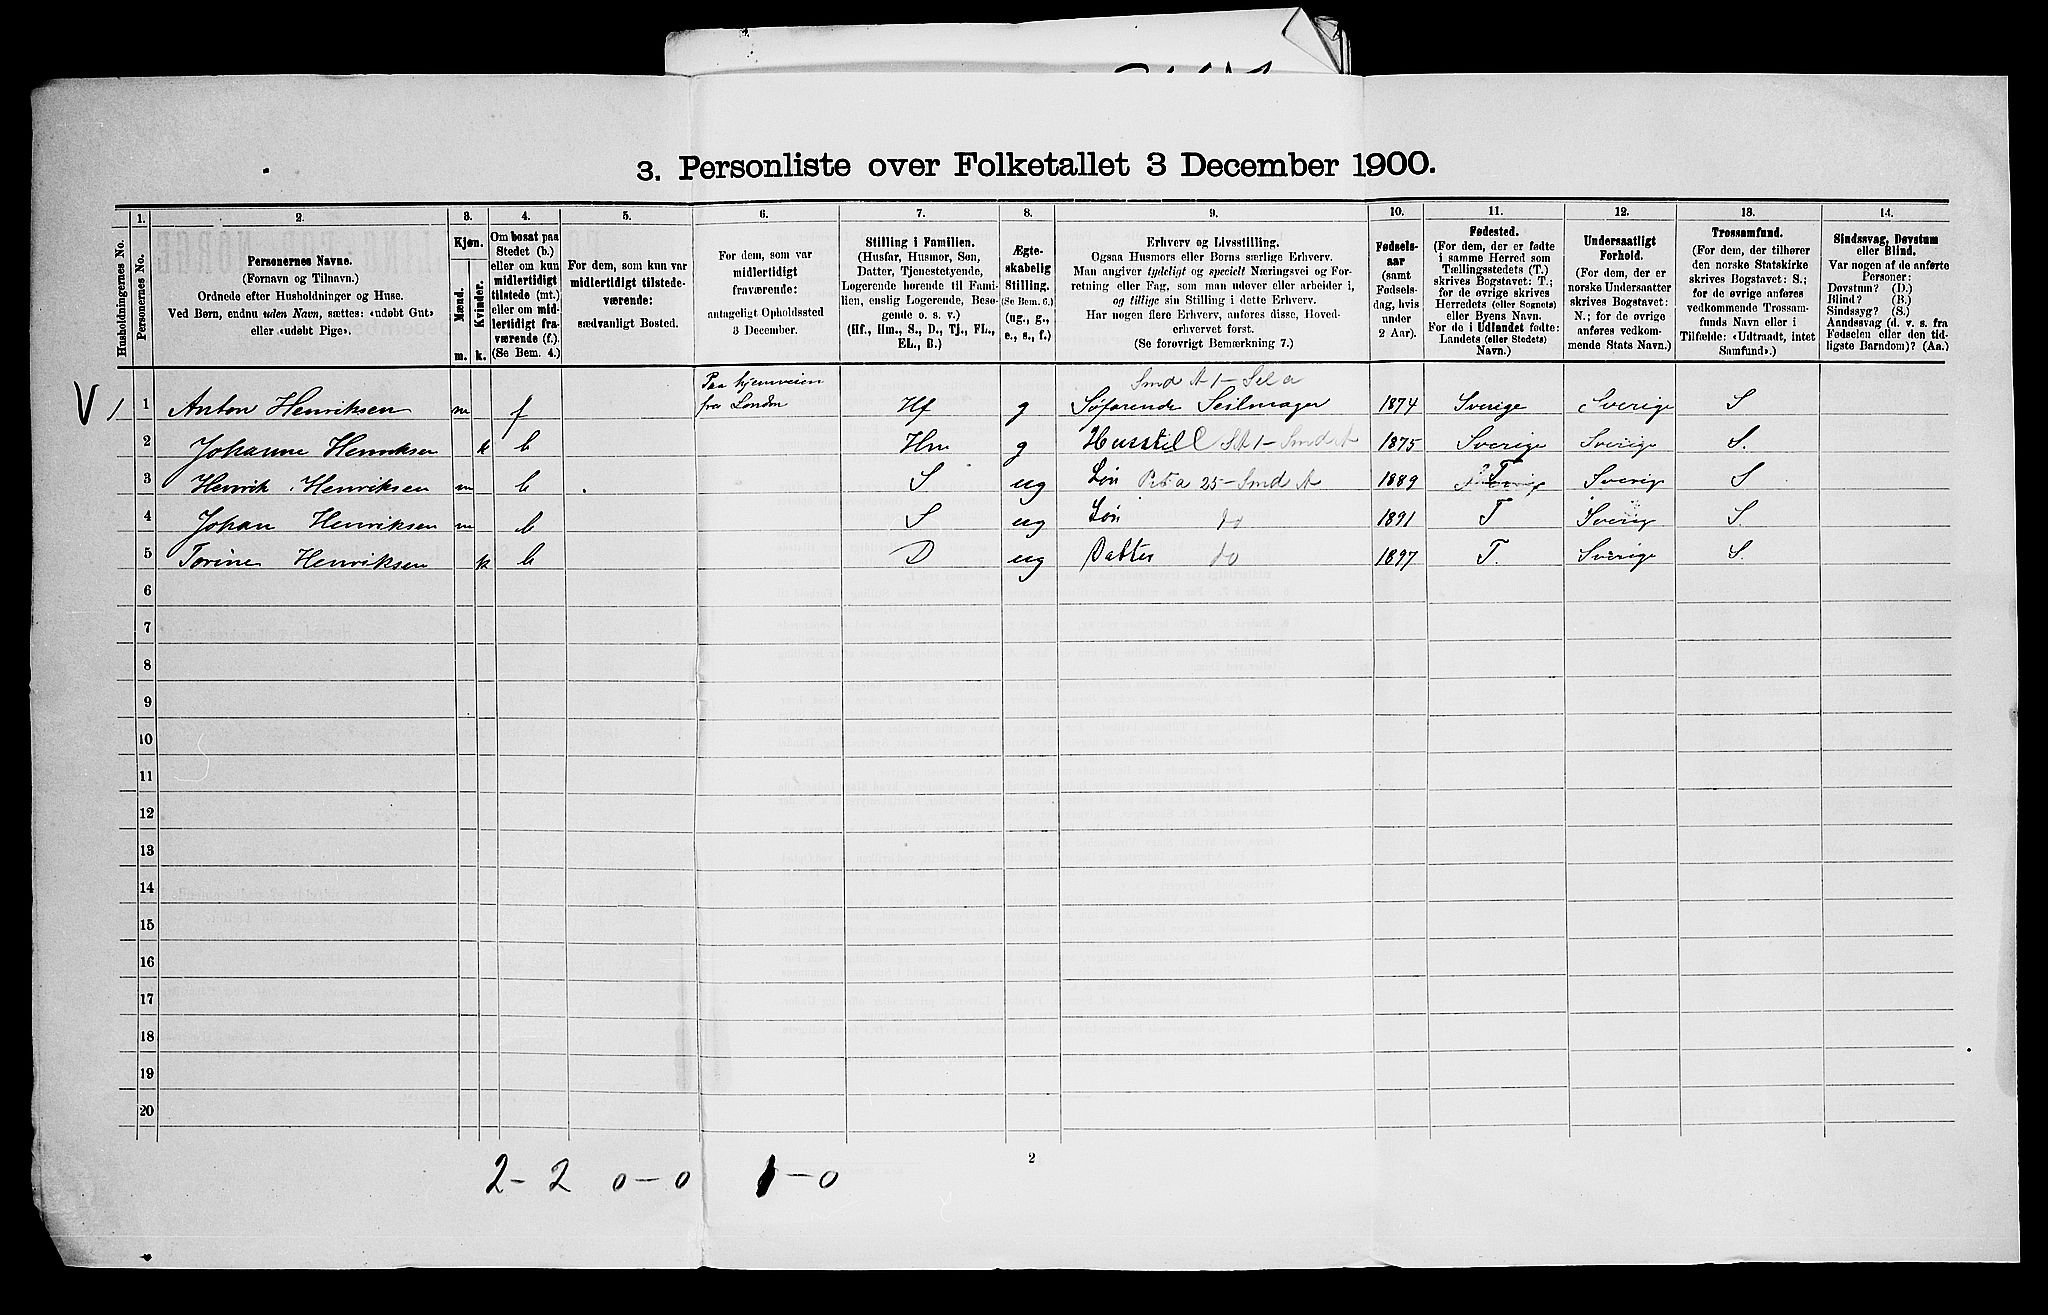 3. Personliste over Folketallet 3 December 1900.
Husholdningernes No.
1.
Personernes No.
2.
Personernes Navne.
(Fornavn og Tilnavn.)
Ordnede efter Husholdninger og Huse.
Ved Børn, endnu uden Navn, sættes: «udøbt Gut»
eller «udøbt Pige».
3.
Kjøn.
Mænd.
Kvinder.
m. k.
4.
Om bosat paa
Stedet (b.)
eller om kun
midlertidigt
tilstede (mt.)
eller om mid-
lertidigt fra-
værende (f.)
(Se Bem. 4.)
5.
For dem, som kun var
midlertidigt tilstede-
værende:
sædvanligt Bosted.
6.
For dem, som var
midlertidigt
fraværende:
antageligt Opholdssted
3 December.
7.
Stilling i Familien.
(Husfar, Husmor, Søn,
Datter, Tjenestetyende,
Logerende hørende til Fami-
lien, enslig Logerende, Besø-
gende o. s. v.)
(Hf., Hm., S., D., Tj., FL.,
EL., B.)
8.
Ægte-
skabelig
Stilling.
(Se Bem. 6.)
(ug., g.,
e., s., f.)
9.
Erhverv og Livsstilling.
Ogsaa Husmors eller Børns særlige Erhverv.
Man angiver tydeligt og specielt Næringsvei og For-
retning eller Fag, som man udover eller arbeider i,
og tillige sin Stilling i dette Erhverv.
Har nogen flere Erhverv, anføres disse, Hoved-
erhvervet først.
(Se forøvrigt Bemærkning 7.)
10.
Fødsels-
aar
(samt
Fødsels-
dag, hvis
under
2 Aar).
11.
Fødested.
(For dem, der er fødte
i samme Herred som
Tællingsstedets (T.)
skrives Bogstavet: T.;
for de øvrige skrives
Herredets (eller Sognets)
eller Byens Navn.
For de i Udlandet fødte:
Landets (eller Stedets)
Navn.)
12.
Undersaatligt
Forhold.
(For dem, der er
norske Undersaatter
skrives Bogstavet:
N.; for de øvrige
anføres vedkom-
mende Stats Navn.)
13.
Trossamfund.
(For dem, der tilhører
den norske Statskirke
skrives Bogstavet: S.;
for de øvrige anføres
vedkommende Trossam-
funds Navn eller i
Tilfælde: «Udtraadt, intet
Samfund».)
14.
Sindssvag, Døvstum
eller Blind.
Var nogen af de anførte
Personer:
Døvstum? (D.)
Blind? (B.)
Sindssyg? (S.)
Aandssvag (d. v. s. fra
Fødselen eller den tid-
ligste Barndom)? (Aa.)
Paa hjemveien Smd A 1-Sela
V 1 1 Anton Henriksen m f fra London Hf g Søfarende Seilmager 1874 Sverige Sverige S
2 Johanne Henriksen k b Hm g Husstell 1-Smd A 1875 Sverige Sverige S.
3 Henrik Henriksen m b S ug Søn 25-Smd A 1889 T Sverige S
4 Johan Henriksen m b S ug Søn do 1891 T Sverige S.
5 Torine Henriksen k b D ug Datter do 1897 T. Sverige S.
6
7
8
9
10
11
12
13
14
15
16
17
18
19
20
2
2-2 0-0 1-0